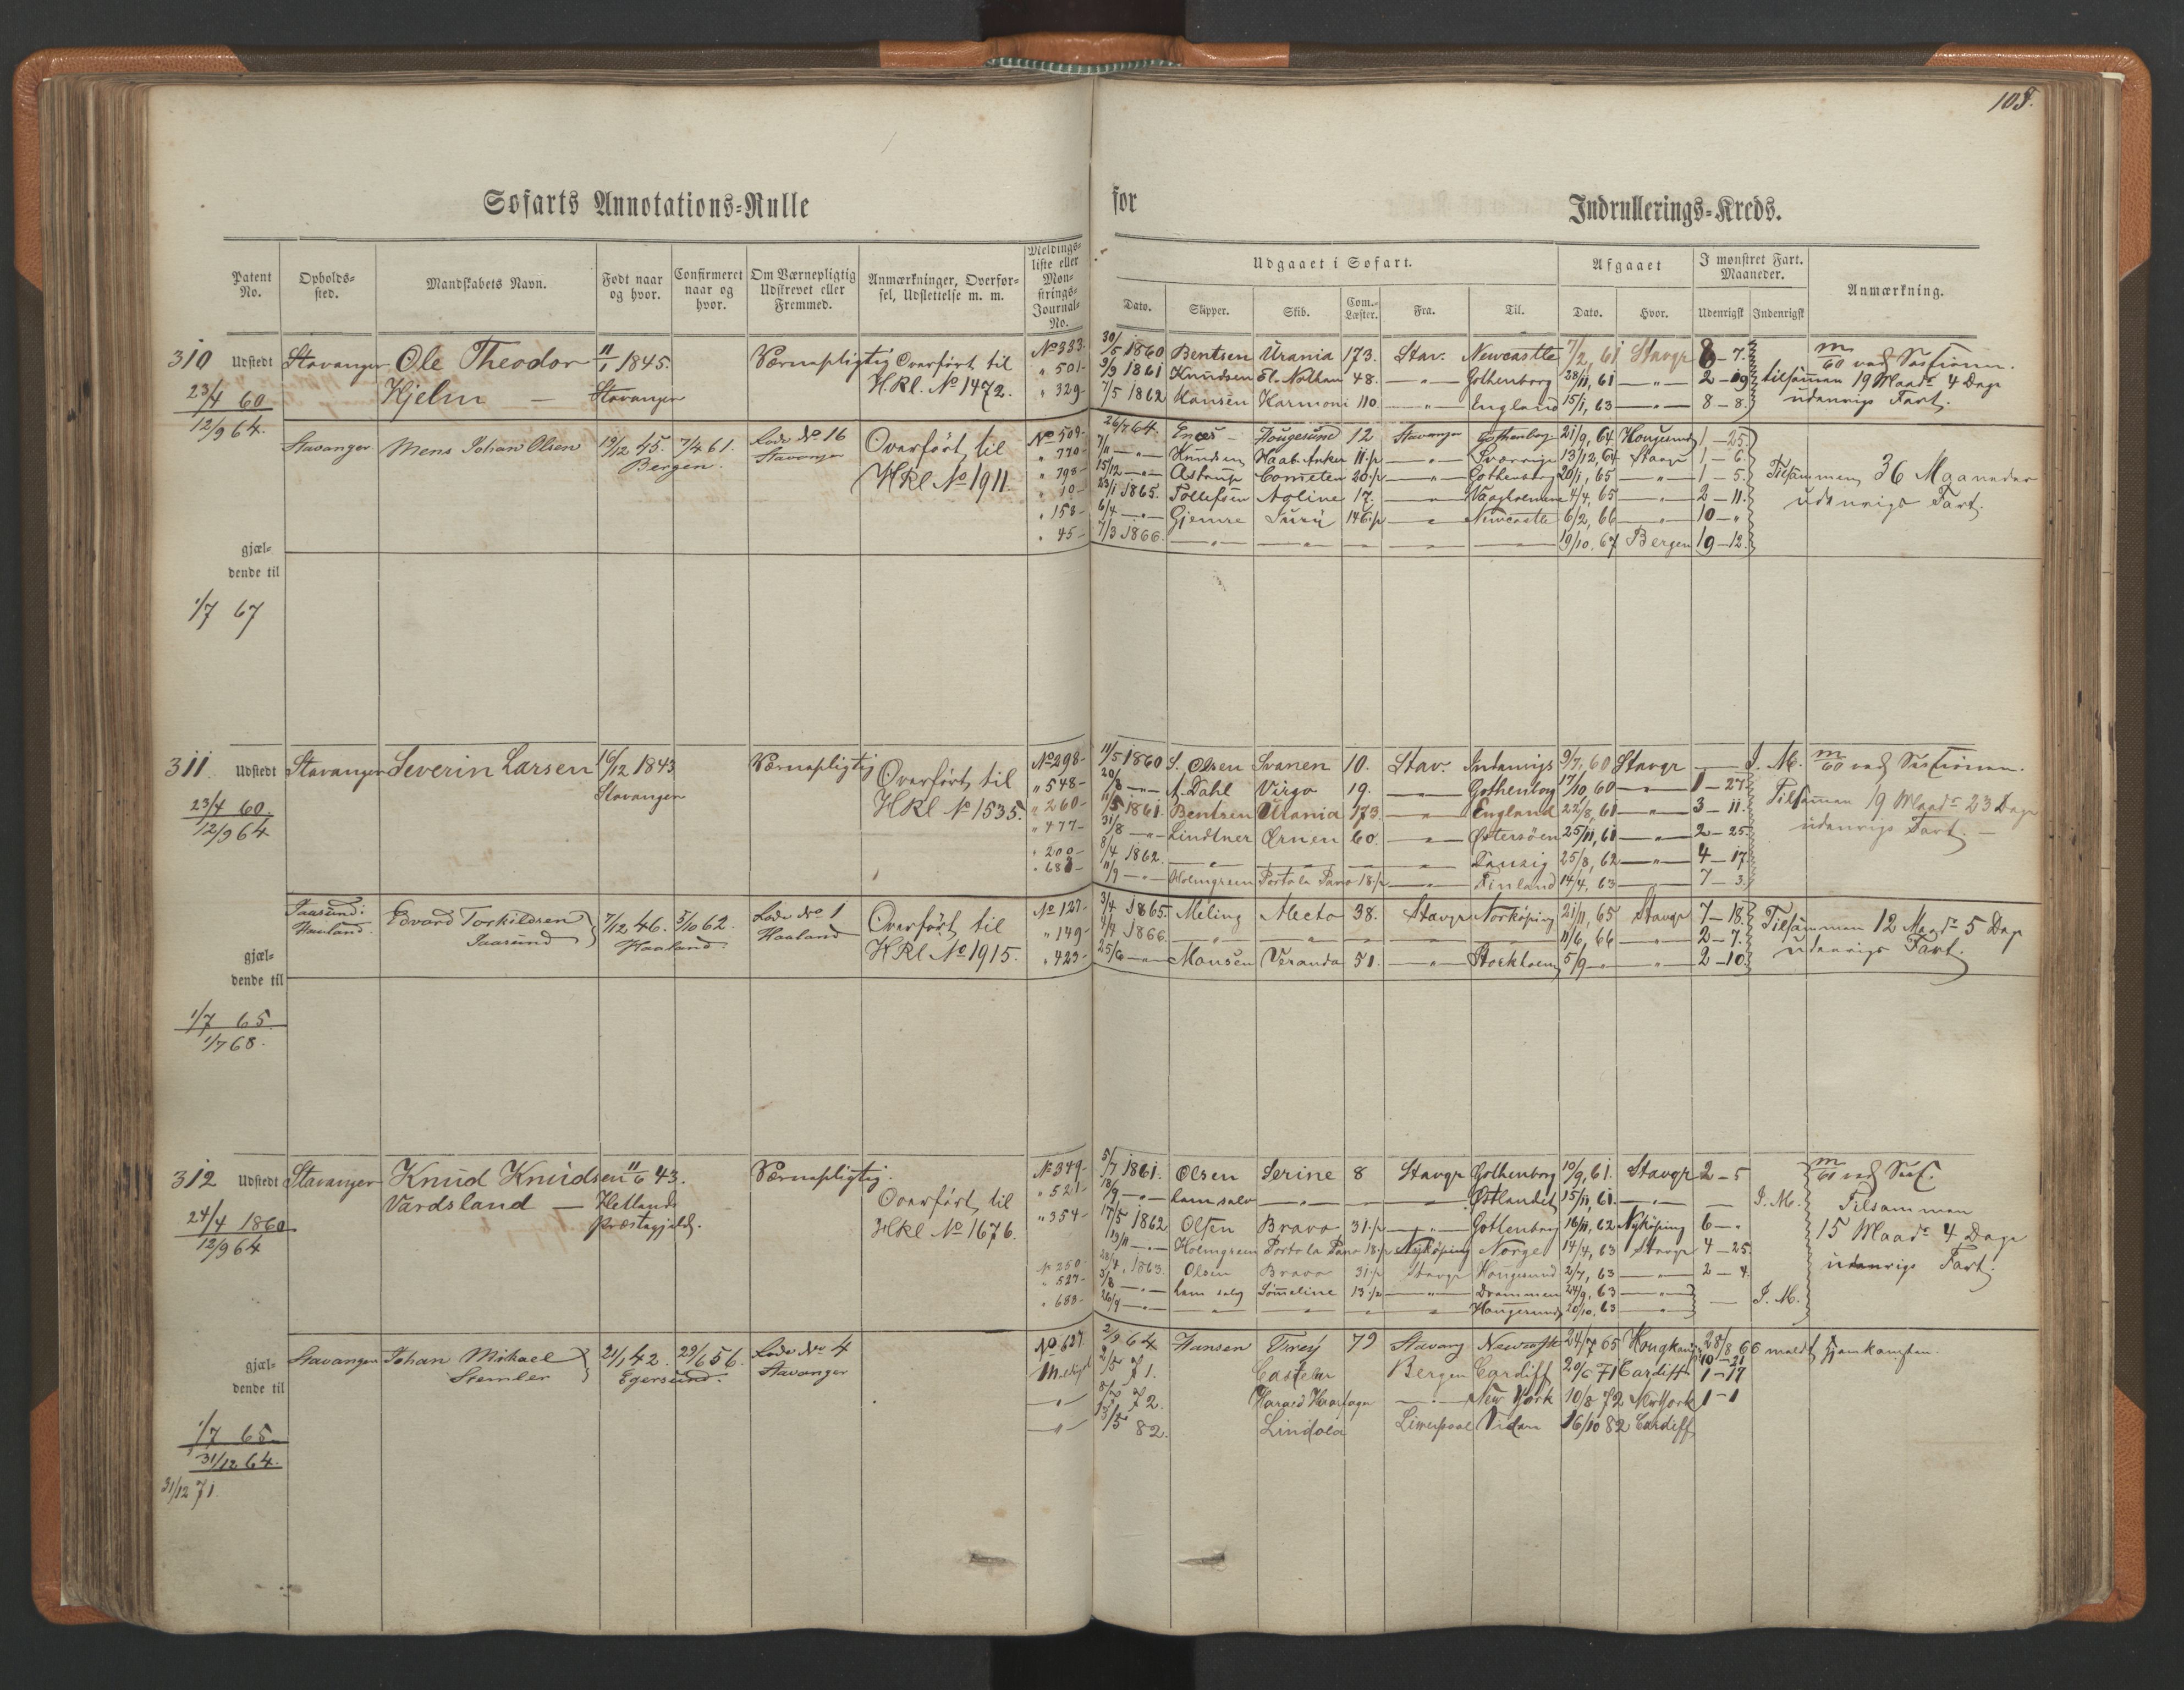 108.
Søfarts Annotations-Rulle for Indrullerings-Kreds.
Patent No. Opholds-sted. Mandskabets Navn. Født naar og hvor. Confirmeret naar og hvor. Om Værnepligtig Udskrevet eller Fremmed. Anmærkninger, Overfør-sel, Udslettelse m. m. Meldings-liste eller Møn-strings-Journal-No.
Udgaaet i Søfart. Afgaaet I mønstret Fart. Maaneder. Anmærkning.
Dato. Skipper. Skib. Com.-Læster. Fra. Til. Dato. Hvor. Udenrigsk Indenrigsk
310 Udstedt Stavanger Ole Theodor 11/1 1845. Værnepligtig Overført til No 333. 30/5 1860 Bentsen Urania 173. Stav. Newcastle 7/2, 61 Stavgr 8-7.
23/4 60 Hjelm — Stavanger H.Rl. No 1472. " 501- 9/9 1861 Knudsen El. Nathan 48. —"— Gothenborg 28/11, 61 —"— 2-19 tilsammen 19 Maadr 4 Dage
12/9 64. " 329- 7/5 1862 Hansen Harmoni 110. —"— England 15/1, 63 —"— 8-8. udenrigs Fart.
Stavanger Mens Johan Olsen 19/12 45. 7/4 61. Lods No 16 Overført til No 509- 26/7 64. Haugesund 12 Stavanger Gothenbg. 21/9, 64 Haugesund 1-25.
Bergen. Stavanger HRl No 1911. " 770- 7/11 —"— Knudsen Haabs Anker 11.½ —"— Sverrige 13/12, 64 Stavgr 1-6.
" 798- 15/12 —"— Astrup Cometen 20.½ —"— Gothenborg 20/1, 65 —"— 1-5. Tilsammen 36 Maaneder
" 10- 23/1 1865. Tollefsen Agline 17. —"— 4/4, 65 —"— 2-11. udenrigs Fart.
" 158- 6/4 —"— Gjemre 146.½ —"— Newcastle 6/2, 66 —"— 10-"
" 45- 7/3 1866. —"— 19/10, 67 Bergen 19-12.
gjæl-
dende til
1/7 67
311 Udstedt Stavanger Severin Larsen 16/12 1843 Værnepligtig Overført til No 298- 11/5 1860 S. Olsen Svanen 10. Stav. Indenrigs 9/7, 60 Stavgr — I. M.
23/4 60. Stavanger HRl No 1535. " 548- 20/8 —"— A. Dahl Virgo 19. —"— Gothenborg 17/10 60 —"— 1-27. Tilsammen 19 Maadr 23 Dage
12/9 64 " 260- 11/5 1861. Bentsen Urania 173. —"— England 22/8, 61 —"— 3-11. udenrigs Fart. —
" 477- 31/8 —"— Lindtner Ørnen 60. —"— Østersøen 25/11, 61 —"— 2-25.
" 200- 8/4 1862. —"— Danzig 25/8, 62 —"— 4-17.
" 688- 11/9 —"— Holmgreen Portola Pavo 18.½ —"— Finland 14/4, 63 — 7-3.
Taasund i Edvard Torkildsen 7/12 46. 5/10 62. Lods No 1 Overført til No 127- 3/4 1865. Meling Alecto 38. Stavgr Norköping 21/11, 65 Stavgr 7-18. Tilsammen 12 Maadr 5 Dage
Haaland. Taasund Haaland. Haaland HRl No 1915. " 149- 4/4 1866. —"— 11/6, 66 —"— 2-7. udenrigs Fart.
" 423- 25/6 —"— Monsen Veranda 51. —"— Stockholm 5/9 —"— 2-10.
gjæl-
dende til
1/7 65.
1/7 68.
312 Udstedt Stavanger Knud Knudsen 11/6 43. Værnepligtig. No 349- 5/7 1861. Olsen Serine 8 Stavgr Gothenborg 10/9, 61. Stavgr 2-5
24/4 1860 Vardsland — Hetlands Overført til " 521- 18/9 —"— ham selv —"— Østlandet 15/11, 61. —"— — I. M. Tilsammen
12/9 64 Præstegjeld. HRl No 1676. " 354- 17/5 1862 Olsen Bravo 31.½ —"— Gothenborg 16/11, 62 Nyköping 6-" 15 Maadr 4 Dage
13/11 —"— Holmgreen Portola Pavo 18.½ Nyköping Norge 14/4, 63 Stavgr 4-25. udenrigs Fart.
No 250 28/4, 1863. Olsen Bravo 31.½ Stavgr Haugesund 2/7, 63 —"— 2-4.
" 527- 3/8 —"— ham selv 13.½ —"— Drammen 24/9, 63 —"—
" 683- 26/9 —"— Haugesund 20/10, 63 —"— — I. M.
gjæl- Stavanger Johan Michael 21/1 42. 29/6 56. Lods No 4 No 627. 2/9 64 Hansen 79 Stavang 24/7 65 Hongkong 28/8 66 meldt hjemkommen.
dende til Stemler Egersund. Stavanger 2/5 71. Castelar Bergen Cardiff 20/6 71 Cardiff 1-17
—"— 72. Harald Haarfager —"— New York 10/8 72 NewYork 1-1
1/7 65. —"— 13/5 82. Lindola Liverpool 16/10 82 Cardiff
31/12 64.
31/12 71.